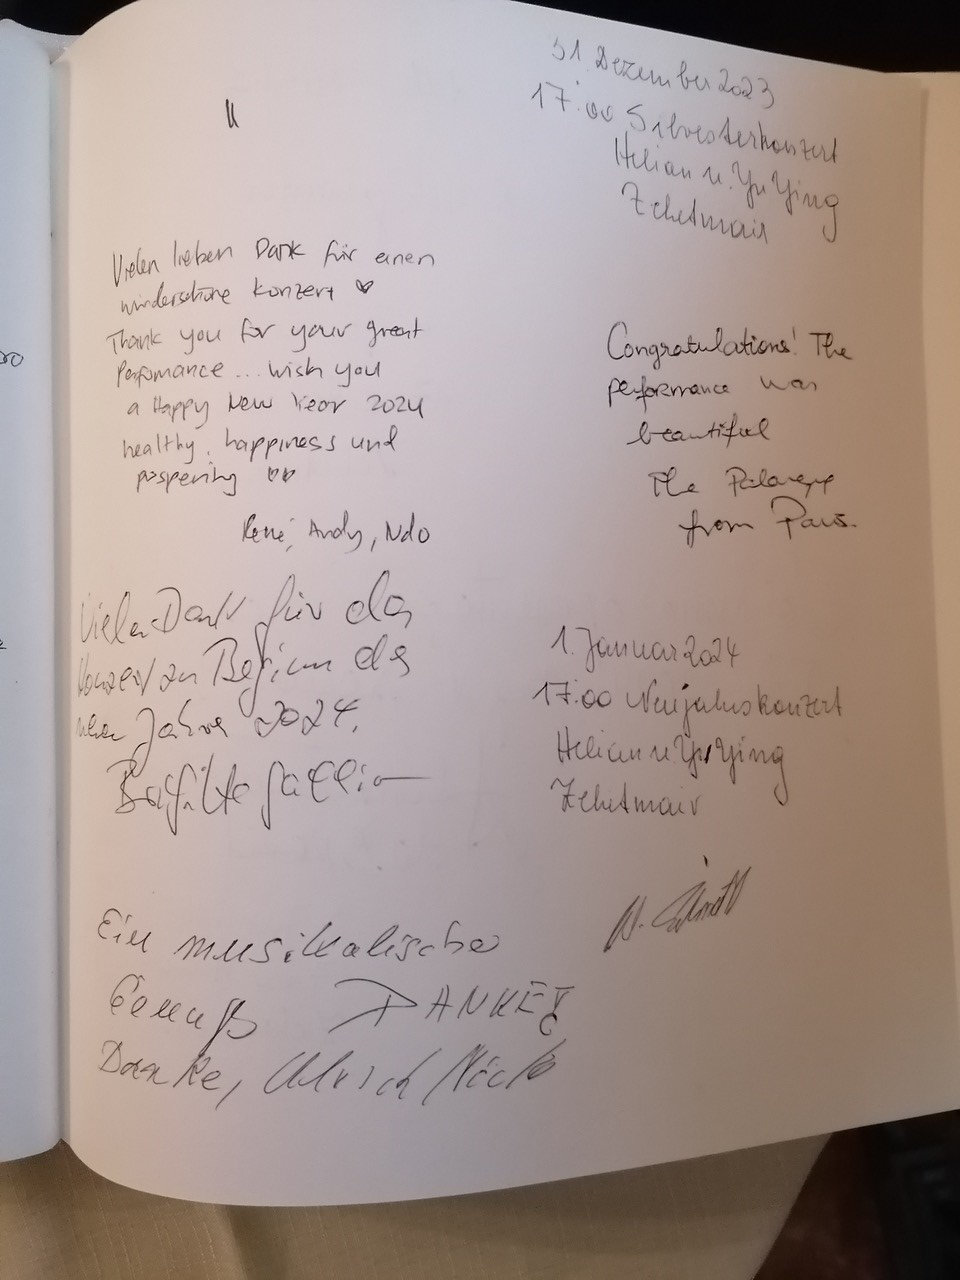 31. Dezember 2023
17:00 Silvesterkonzert
Helian u. Yu Ying
Zehetmair
Vielen lieben Dank für einen
wunderschöne Konzert ♥
Thank you for your great
Perfomance ... wish you
a Happy New Year 2024
healthy, happiness und
prospering ♥♥
René, Andy, Ndo
Congratulations! The
performance was
beautiful
The
from Paris.
Vielen Dank für das
Konzert zu Beginn des
neuen Jahres 2024.
Brigitte
1. Januar 2024
17:00 Neujahrskonzert
Helian u. Yu Ying
Zehetmair
Ein musikalischer
Genuß DANKE!
Danke, Ulrich